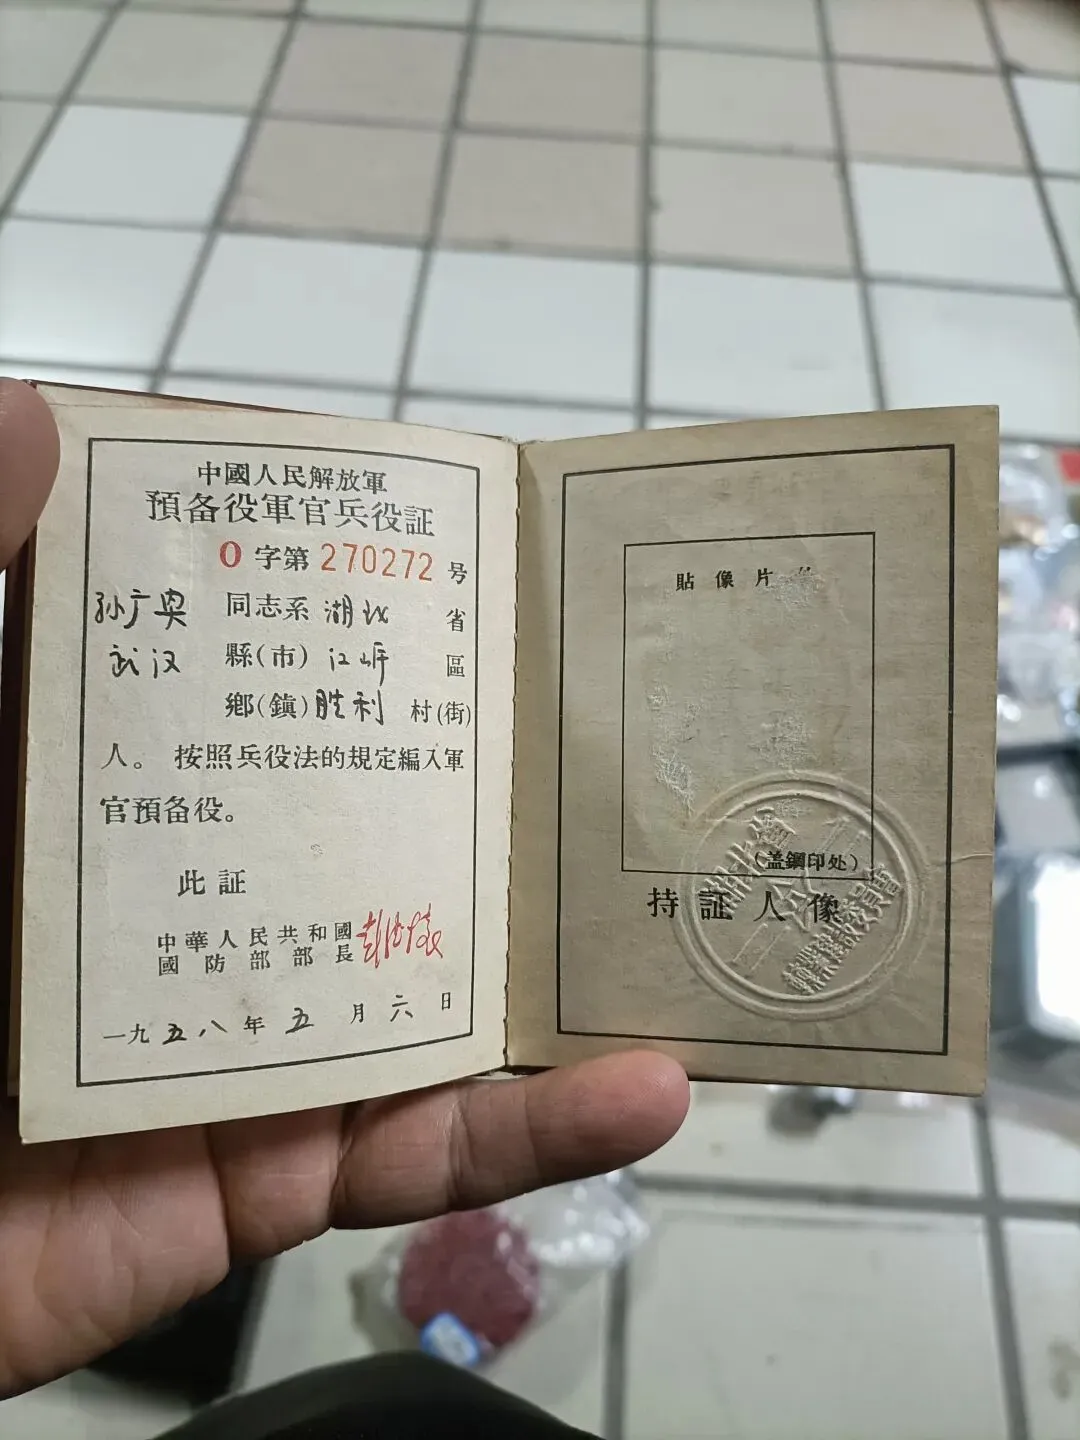 中國人民解放軍
預备役軍官兵役証
O 字第 270272 号
孙广奥 同志系 湖北 省
武汉 縣(市) 江岸 區
鄉(鎮) 胜利 村(街)
人。 按照兵役法的規定編入軍
官預备役。
此証
中華人民共和國
國防部部長 彭德懷
一九五八年五月六日
貼像片
(盖鋼印处)
持証人像
湖北省